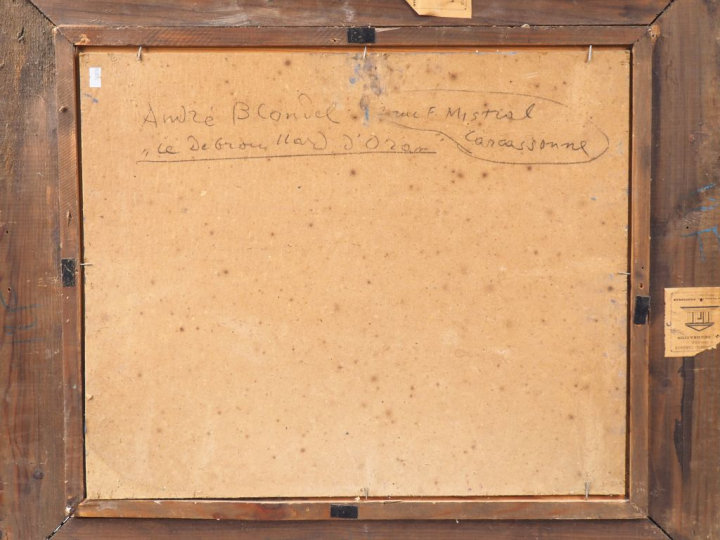 André Blondel rue F. Mistral
"Le Debrouillard d'Oran" Carcassonne